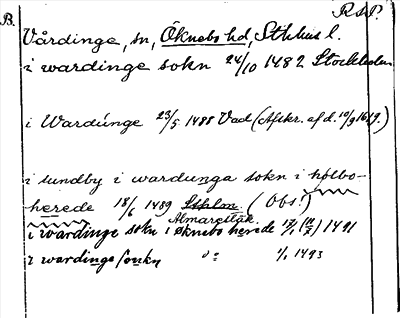 B.
R.A.P.
Vårdinge, sn, Öknebo hd, Sthlms l.
i wardinge sokn 24/10 1482 Stockholm
i Wardunge 23/5 1488 Vad (Afskr. af d. 10/9 1619.)
i sundby i wardunga sokn i holbo-
herede 18/6 1489 Sthlm. (Obs!)
Almarestäk.
i wardinge sokn i öknebo herede 17/1 1491
i wardinge sonkn " = 1/1 1493